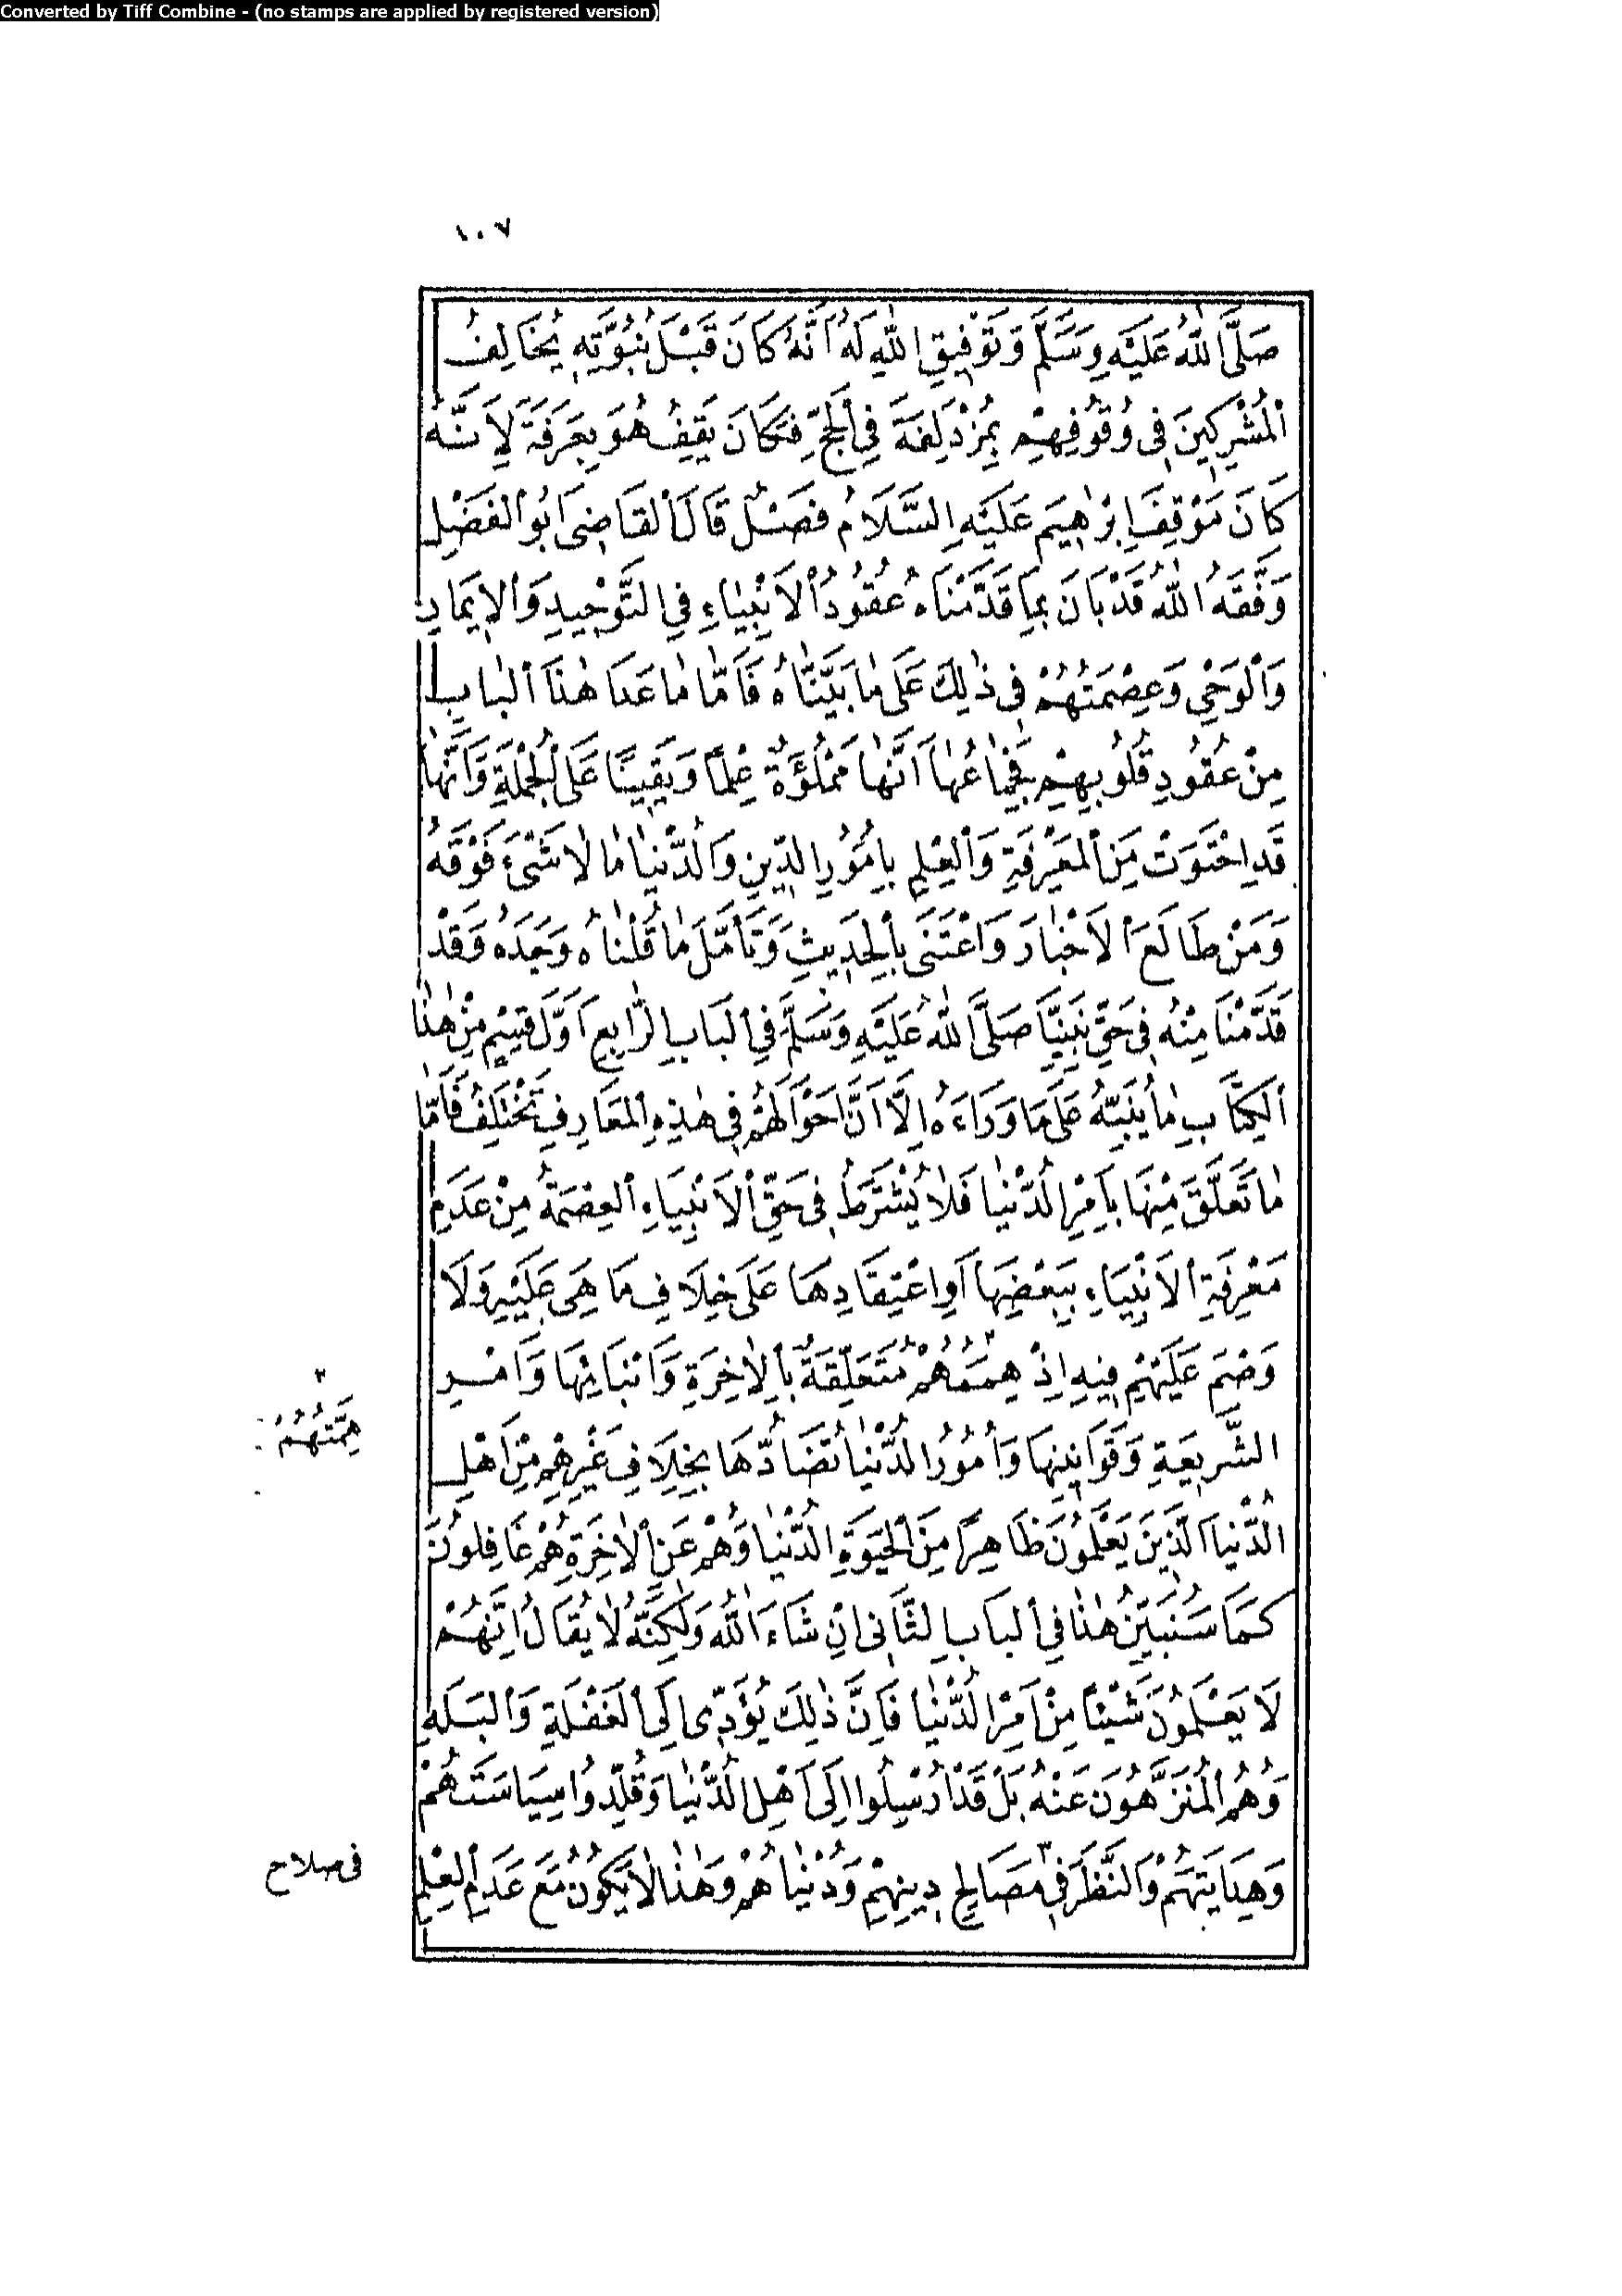 Converted by Tiff Combine - (no stamps are applied by registered version)
١٠٧
صَلَّى اللّٰهُ عَلَيْهِ وَسَلَّمَ وَتَوْفِيقِ اللّٰهِ لَهُ اَنَّهُ كَانَ قَبْلَ نُبُوَّتِهِ يُخَالِفُ
اْلمُشْرِكِينَ فِى وُقُوفِهِمْ بِمُزْدَلِفَةَ فِي اْلحَجِّ فَكَانَ يَقِفُ هُوَ بِعَرَفَةَ لِاَنَّهُ
كَانَ مَوْقِفَ اِبْرٰهِيمَ عَلَيْهِ السَّلَامُ فَصْلٌ قَالَ اْلقَاضِى اَبُو اْلفَضْلِ
وَفَّقَهُ اللّٰهُ قَدْ بَانَ بِمَا قَدَّمْنَاهُ عُقُودُ اْلاَنْبِيٰاءِ فِي التَّوْحِيدِ وَاْلاِيمَانِ
وَاْلوَحْيِ وَعِصْمَتُهُمْ فِى ذٰلِكَ عَلَى مٰا بَيَّنّٰاهُ فَاَمّٰا مٰا عَدَا هٰذَا اْلبٰابِ
مِنْ عُقُودِ قُلُوبِهِمْ فَجِمٰاعُهٰا اَنَّهٰا مَمْلُوَّةٌ عِلْمًا وَيَقِينًا عَلَى اْلجُمْلَةِ وَاَنَّهٰا
قَدِ احْتَوَتْ مِنَ اْلمَعْرِفَةِ وَاْلعِلْمِ بِاُمُورِ الدِّينِ وَالدُّنْيٰا مٰا لٰا شَىْءَ فَوْقَهُ
وَمَنْ طَالَعَ اْلاَخْبٰارَ وَاعْتَنَى بِاْلحَدِيثِ وَتَأَمَّلَ مٰا قُلْنٰاهُ وَجَدَهُ وَقَدْ
قَدَّمْنَا مِنْهُ فِى حَقِّ نَبِيِّنَا صَلَّى اللّٰهُ عَلَيْهِ وَسَلَّمَ فِي اْلبَابِ الرّٰابِعِ اَوَّلَ قِسْمٍ مِنْ هٰذَا
اْلكِتَابِ مٰا يُنَبِّهُ عَلَى مَا وَرَاءَهُ اِلَّا اَنَّ اَحْوَالَهُمْ فِى هٰذِهِ اْلمَعَارِفِ تَخْتَلِفُ فَاَمّٰا
مٰا تَعَلَّقَ مِنْهَا بِاَمْرِ الدُّنْيٰا فَلٰا يُشْتَرَطُ فِى حَقِّ اْلاَنْبِيَاءِ اْلعِصْمَةُ مِنْ عَدَمِ
مَعْرِفَةِ اْلاَنْبِيَاءِ بِبَعْضِهَا اَوِ اعْتِقَادِهَا عَلَى خِلَافِ مَا هِىَ عَلَيْهِ وَلَا
وَصْمَ عَلَيْهِمْ فِيهِ اِذْ هِمَمُهُمْ ٢ مُتَعَلِّقَةٌ بِاْلاٰخِرَةِ وَاَنْبَائِهَا وَاَمْرِ
٢
هِمَّتُهُمْ
الشَّرِيعَةِ وَقَوَانِينِهَا وَاُمُورُ الدُّنْيٰا تُضَادُّهَا بِخِلَافِ غَيْرِهِمْ مِنْ اَهْلِ
الدُّنْيَا الَّذِينَ يَعْلَمُونَ ظَاهِرًا مِنَ اْلحَيٰوةِ الدُّنْيٰا وَهُمْ عَنِ اْلاٰخِرَةِ هُمْ غَافِلُونَ
كَمَا سَنُبَيِّنُ هٰذَا فِي اْلبَابِ الثَّانِى اِنْ شَاءَ اللّٰهُ وَلٰكِنَّهُ لٰا يُقَالُ اِنَّهُمْ
لَا يَعْلَمُونَ شَيْئًا مِنْ اَمْرِ الدُّنْيٰا فَاِنَّ ذٰلِكَ يُؤَدِّى اِلَى اْلغَفْلَةِ وَاْلبَلَهِ
وَهُمُ اْلمُنَزَّهُونَ عَنْهُ بَلْ قَدْ اُرْسِلُوا اِلَى اَهْلِ الدُّنْيٰا وَقُلِّدُوا سِيَاسَتَهُمْ
وَهِدَايَتَهُمْ وَالنَّظَرَ فِى ٣ مَصَالِحِ دِينِهِمْ وَدُنْيٰاهُمْ وَهٰذٰا لٰا يَكُونُ مَعَ عَدَمِ اْلعِلْمِ
فى صلاح